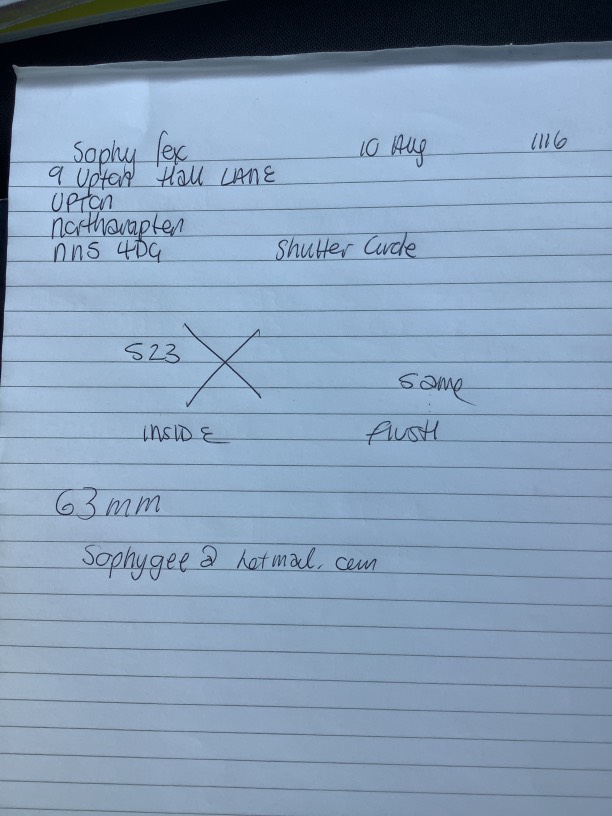 Sophy fox 10 Aug 1116
9 Upton Hall LANE
UPton
northampton
nn5 4DG Shutter Circle
523
same
INSIDE flusH
63mm
Sophygee@hotmail.com